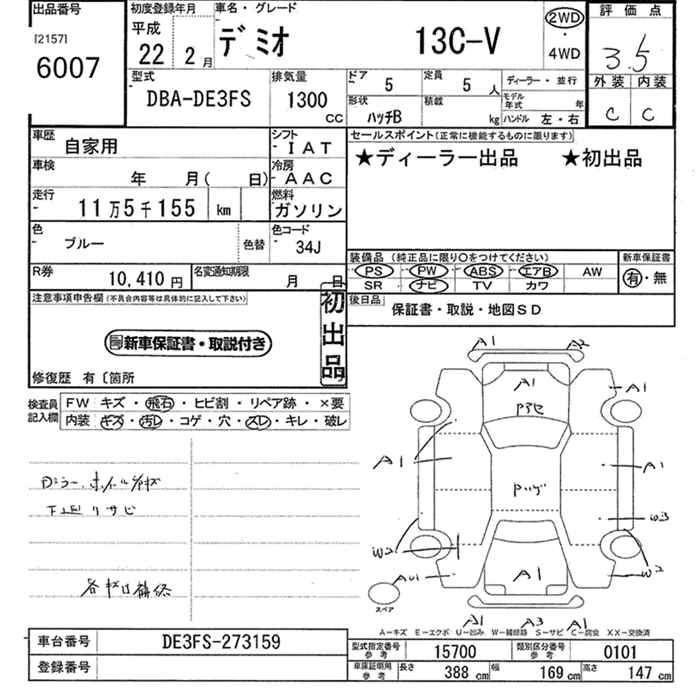 出品番号 初度登録年月 車名・グレード 評価点
[2157] 平成
6007 22年 2月 デミオ 13C-V 2WD・4WD 3.5
型式 排気量 ドア 5 定員 5人 ディーラー・並行 外装 内装
DBA-DE3FS 1300cc 形状 ハッチB 積載 kg モデル年式 年 C C
ハンドル 左・右
車歴 自家用 シフト IAT セールスポイント(正常に機能するものに限ります)
車検 年 月( 日) 冷房 AAC ★ディーラー出品 ★初出品
走行 11万5千155 km 燃料 ガソリン
色 ブルー 色替 色コード 34J
装備品(純正品に限り○をつけてください) 新車保証書
R券 10,410円 名変通知期限 月 日 PS PW ABS エアB AW 有・無
SR ナビ TV カワ
注意事項申告欄(不具合内容等は具体的に記入して下さい) 初出品 後日品 保証書・取説・地図SD
新車保証書・取説付き
修復歴 有〔箇所
検査員記入欄 FW キズ・飛石・ヒビ割・リペア跡・×要
内装 キズ・汚レ・コゲ・穴・スレ・キレ・破レ
下廻りサビ
A1 A2
A1
A1
A1 A1
W3
W2 W2
A1
スペア
A1 A3 A1
A－キズ E－エクボ U－凹み W－補修跡 S－サビ C－腐食 XX－交換済
車台番号 DE3FS-273159
登録番号
型式指定番号 参考 15700 類別区分番号 参考 0101
車庫証明用 参考 長さ 388cm 幅 169cm 高さ 147cm